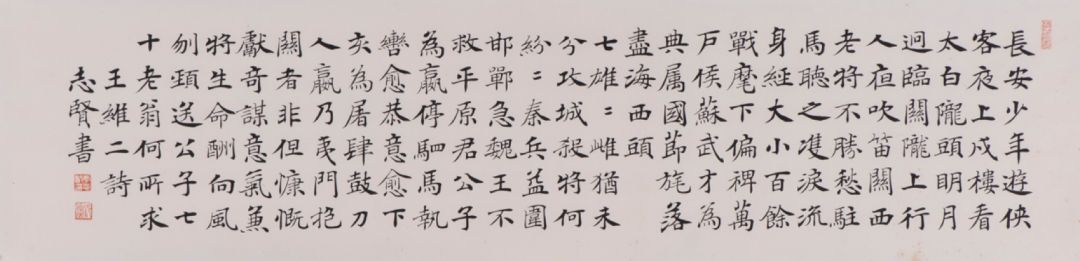 長安少年遊俠
客夜上戍樓看
太白隴頭明月
迥臨關隴上行
人亱吹笛關西
老將不勝愁駐
馬聽之雙淚流
身經大小百餘
戰麾下偏裨萬
戶侯蘇武才為
典属國節旄落
盡海西頭
七雄〻雌猶未
分攻城殺將何
紛〻秦兵益圍
邯鄲急魏王不
救平原君公子
為嬴停駟馬執
轡愈恭意愈下
亥為屠肆鼓刀
人嬴乃夷門抱
關者非但慷慨
獻奇謀意氣兼
將生命酬向風
刎頸送公子七
十老翁何所求
王維二詩
志賢書